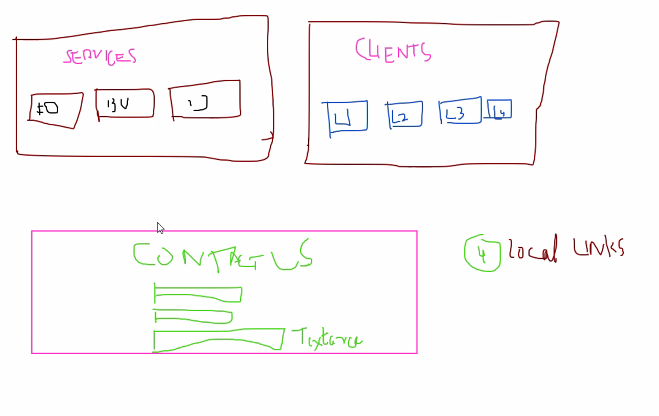 SERVICES
CLIENTS
L1 L2 L3 L4
CONTACT US
Textarea
4 local LINKS